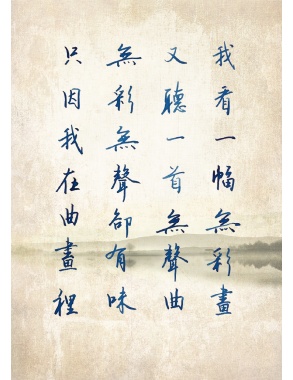 我看一幅無彩畫
又聽一首無聲曲
無彩無聲卻有味
只因我在曲畫裡